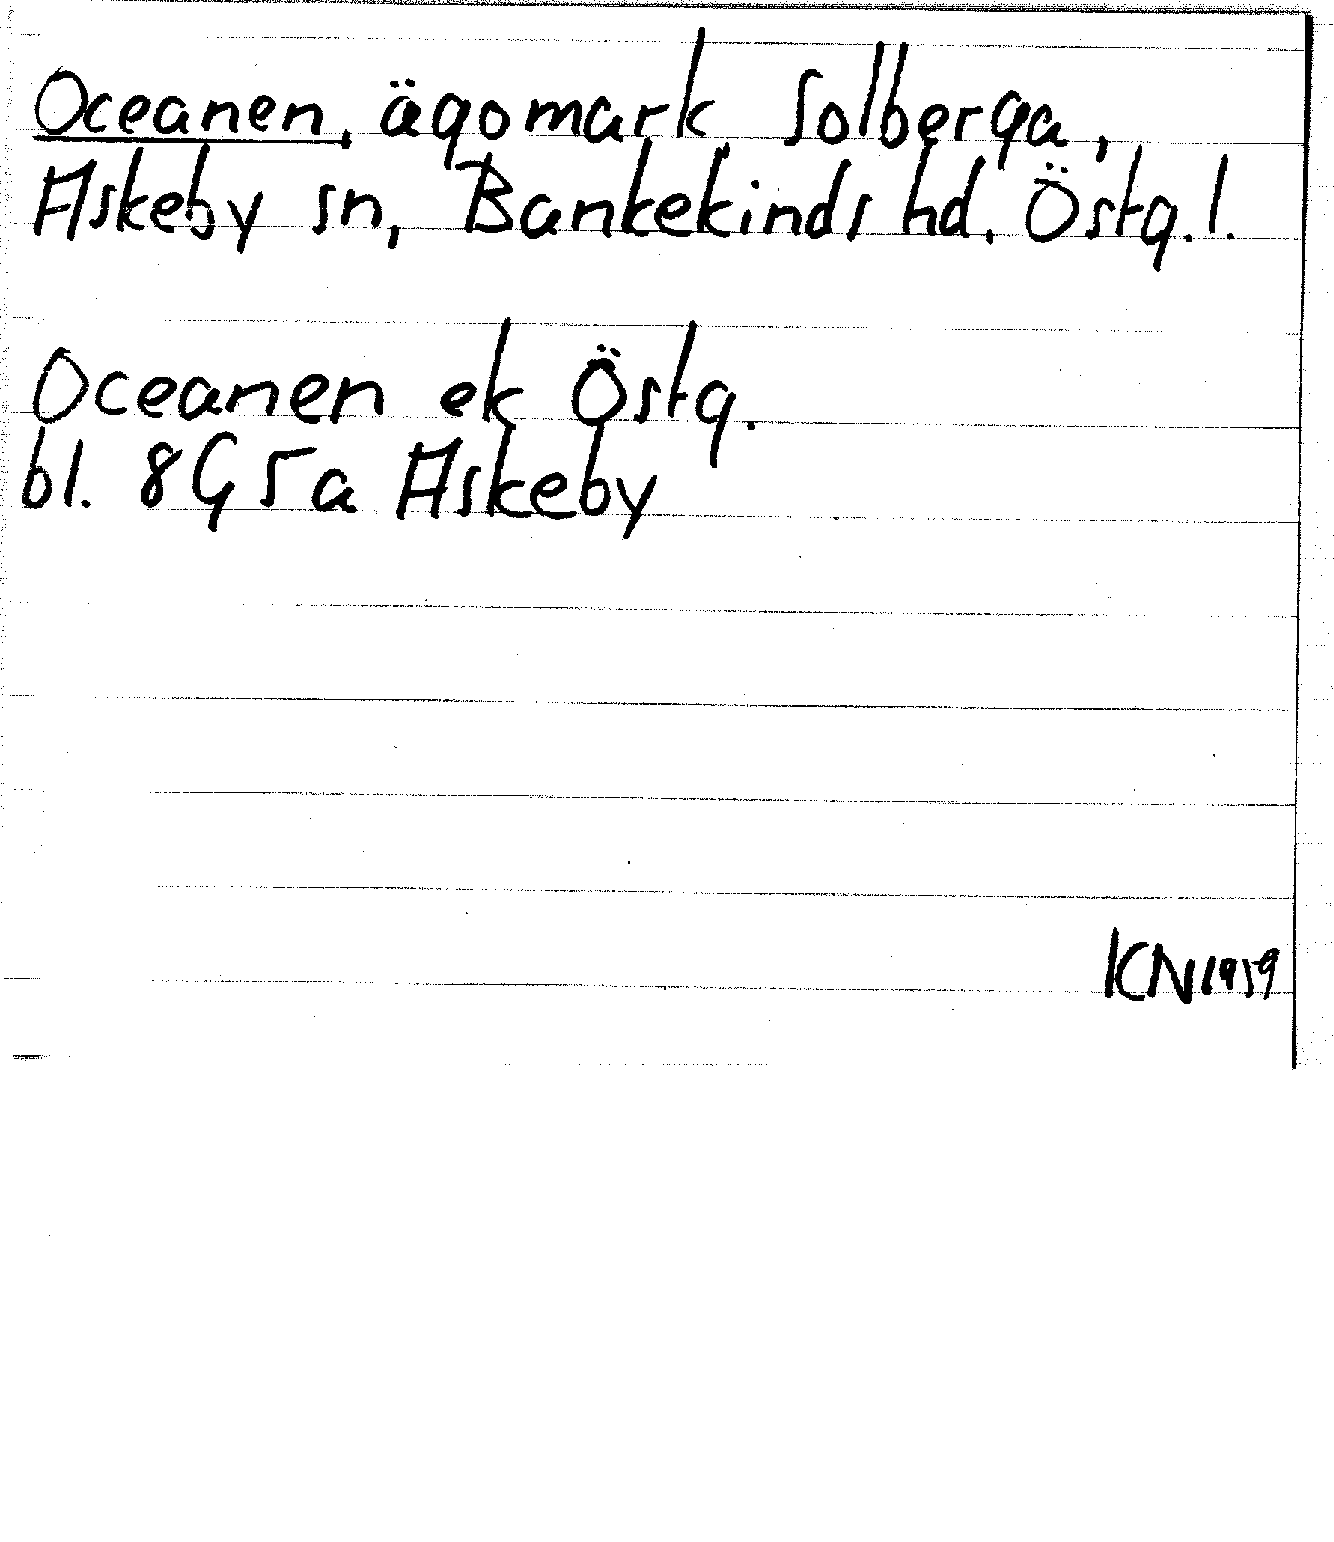 Oceanen, ägomark Solberga,
Askeby sn, Bankekinds hd, Östg.l.
Oceanen ek Östg.
bl. 8G 5a Askeby
KN 1959